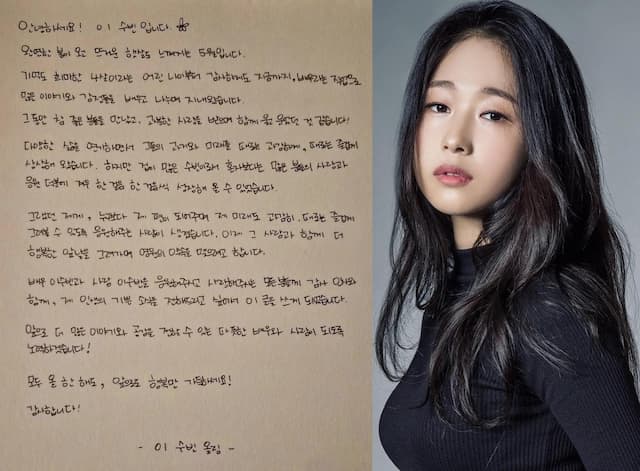 안녕하세요! 이 수빈 입니다.
완연한 봄이 오고 뜨거운 햇살도 느껴지는 5월입니다.
기억도 희미한 4살이라는 어린 나이부터 감사하게도 지금까지, 배우라는 직업으로
많은 이야기와 감정들을 배우고 나누며 지내왔습니다.
그동안 참 좋은 분들을 만나고, 과분한 사랑을 받으며 함께 울고 웃었던 것 같습니다!
다양한 삶을 연기하면서 그들의 과거와 미래를 때로는 고민하며, 때로는 즐겁게
상상해 왔습니다. 하지만 겁이 많은 수빈이라서 혼자보다는 많은 분들의 사랑과
응원 덕분에 겨우 한 걸음 한 걸음씩 성장해 올 수 있었습니다.
그랬던 제게, 누구보다 제 편이 되어주며 제 미래도 고민히, 때로는 즐겁게
그려볼 수 있도록 응원해주는 사람이 생겼습니다. 이제 그 사람과 함께 더
행복한 앞날을 그려가며 영원의 약속을 맺으려고 합니다.
배우 이수빈과 사람 이수빈을 응원해주시고 사랑해주시는 모든 분들께 감사 인사와
함께, 제 인생의 기쁜 소식을 전해드리고 싶어서 이 글을 쓰게 되었습니다.
앞으로 더 많은 이야기와 공감을 전할 수 있는 따뜻한 배우와 사람이 되도록
노력하겠습니다!
모두 올 한 해도, 앞으로도 행복만 가득하세요!
감사합니다!
- 이 수빈 올림 -